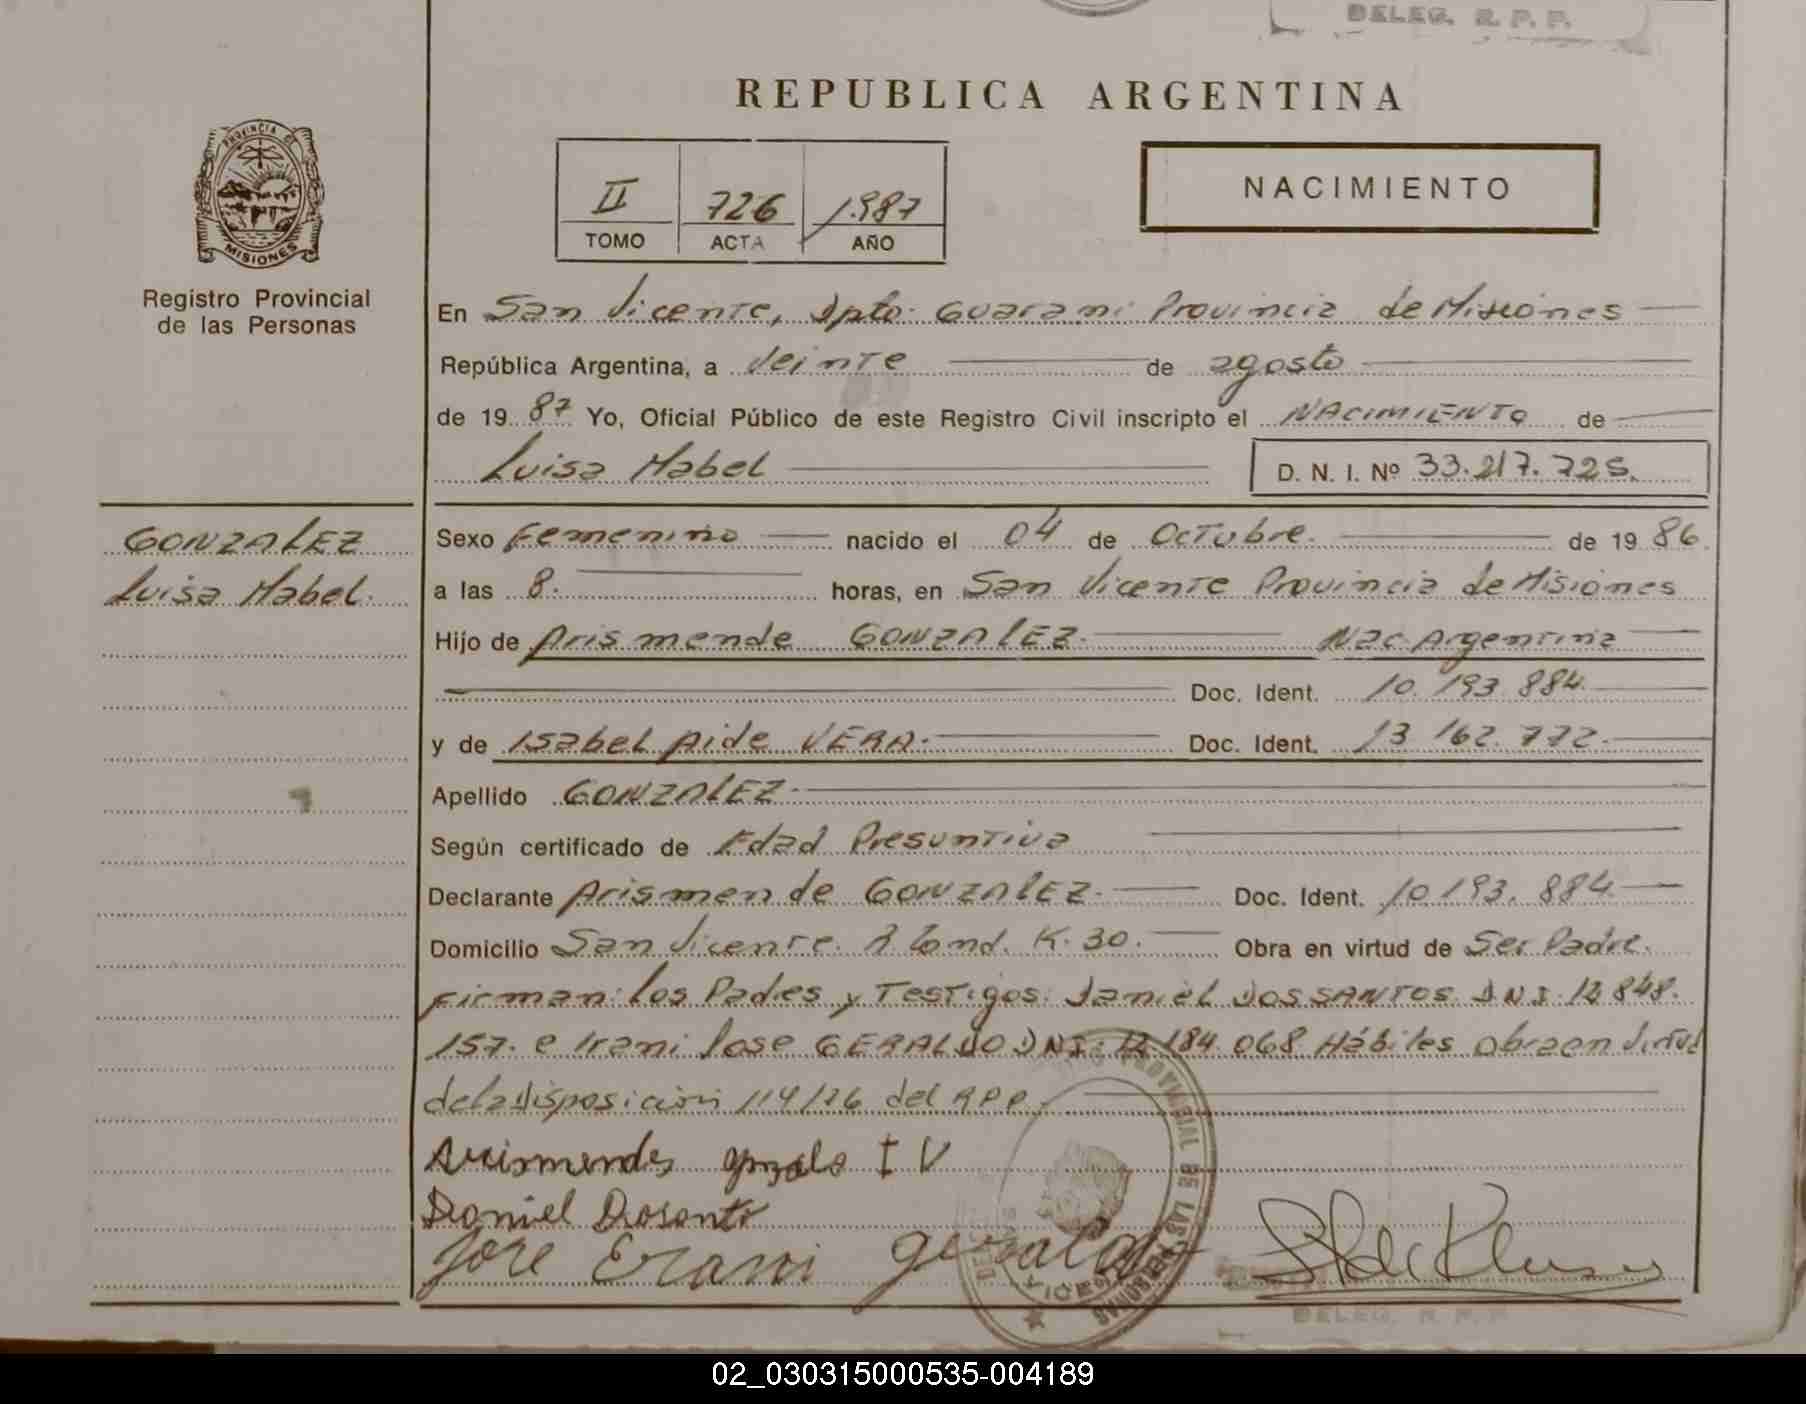 DELEG. R. P. P.
REPUBLICA ARGENTINA
II 726 1.987
TOMO ACTA AÑO
NACIMIENTO
PROVINCIA DE
MISIONES
Registro Provincial
de las Personas
En San Vicente, Dpto. Guarani Provincia de Misiones
República Argentina, a Veinte de agosto
de 19 87 Yo, Oficial Público de este Registro Civil inscripto el NACIMIENTO de
Luisa Mabel D. N. I. Nº 33.217.725.
GONZALEZ
Luisa Mabel.
Sexo Femenino nacido el 04 de Octubre. de 19 86.
a las 8. horas, en San Vicente Provincia de Misiones
Hijo de Arismende GONZALEZ. Nac. Argentina
Doc. Ident. 10.193.884.
y de Isabel Aide VERA. Doc. Ident. 13.162.772.
Apellido GONZALEZ.
Según certificado de Edad Presuntiva
Declarante Arismende GONZALEZ. Doc. Ident. 10.193.884.
Domicilio San Vicente. R. K. 30. Obra en virtud de Ser Padre.
Firman: los Padres y Testigos: Daniel DOS SANTOS D.N.I. 12.848.
157. e Irani Jose GERALDO D.N.I. 12.184.068 Hábiles obra en Virtud
de la Disposición 114/76 del R.P.P.
Arismendes I V
Daniel Dosanto
Jose Erani Geraldo
PROVINCIAL DE LAS PERSONAS
DELEG. R. P. P.
02_030315000535-004189